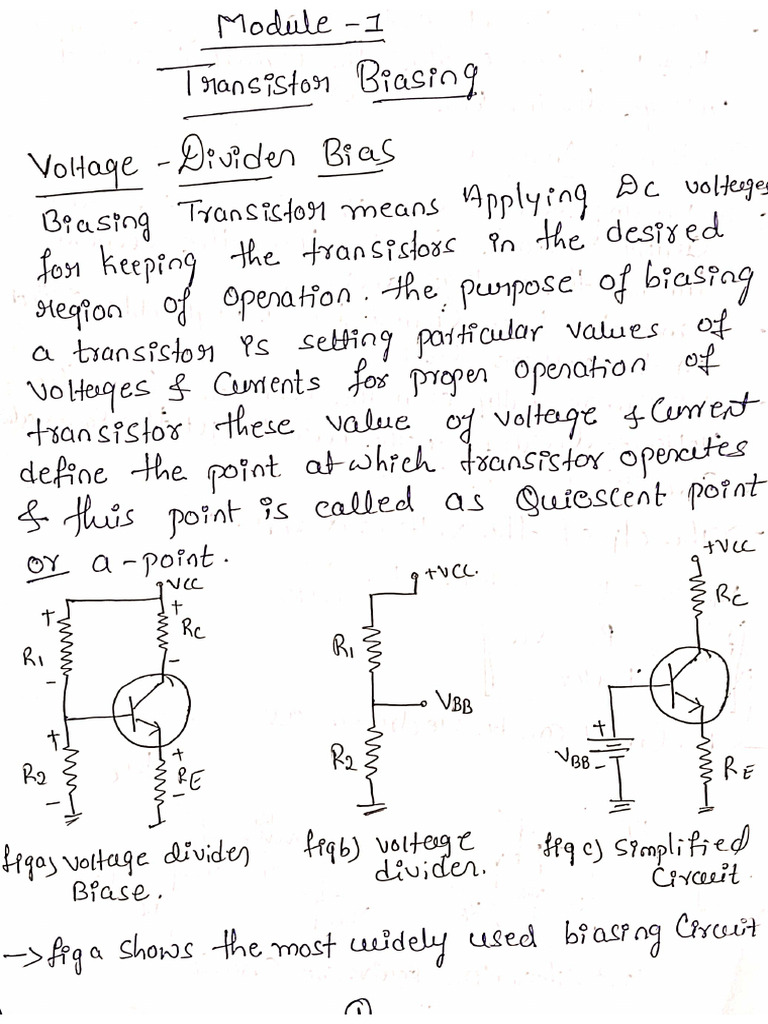 Module - 1
Transistor Biasing
Voltage - Divider Bias
Biasing Transistor means Applying Dc voltages
for keeping the transistors in the desired
region of operation. the purpose of biasing
a transistor is setting particular values of
voltages & Currents for proper operation of
transistor these value of voltage & Current
define the point at which transistor operates
& this point is called as Quiescent point
or a-point.
+VCC
VCC
+VCC.
+ + RC
R1 RC R1
- -
VBB
+ + +
R2 RE R2 VBB - RE
- -
fig a) voltage divider
Biase.
fig b) voltage
divider.
fig c) Simplified
Circuit
-> fig a shows the most widely used biasing Circuit
1